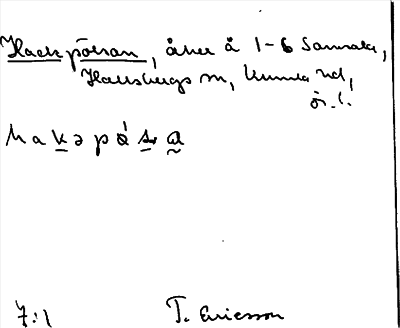 Hackpösran, åker å 1-6 Sannala,
Hallsbergs sn, Kumla hd,
ör. l.
hakəpòsra
7:1 T. Ericsson